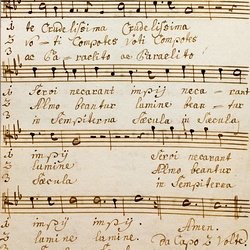 te Crudelissima Crudelissima
vo - ti Compotes voti Compotes
ac Pa - raclito ac Paraclito
Servi necarant impij neca - rant
Almo beantur lumine bean - tur
in Sempiterna Sæcula in Sæcula
impij Servi necarant
lumine Almo beantur
Sæcula in Sempiterna
impij impij Amen.
lumine lumine. Da Capo